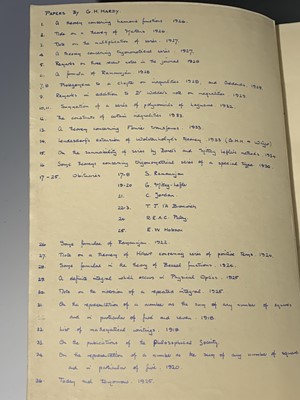 PAPERS BY G.H. HARDY.
1. A theorem concerning harmonic functions 1926.
2. Note on a theorem of Mertens 1926.
3. Note on the multiplication of series. 1927.
4. A theorem concerning trigonometrical series. 1927.
5. Remarks on three recent notes in the journal 1928
6. A formula of Ramanujan 1928
7,8. Prolegomena to a chapter on inequalities 1928, and
9. Remarks in addition to Dr note on inequalities 1929.
10,11. Summation of a series of polynomials of Laguerre 1932.
12. The constants of certain inequalities 1933
13. A theorem concerning Fourier transforms 1933.
14. 1933 (G.H.H.
15. On the summability of series by Borel's and Mittag-Leffler's methods 1934
16. Some theorems concerning trigonometrical series of a special type 1936
17-25. Obituaries 17-18 S. Ramanujan
19-20 G. Mittag-Leffler
21 C. Jordan
22-3 T. J. I'A Bromwich
24 R.E.A.C. Paley
25 E. W. Hobson
26. Some formulae of Ramanujan. 1922.
27. Note on a theorem of Hilbert concerning series of positive terms. 1924.
28. Some formulae in the theory of Bessel functions. 1924.
29. A definite integral which occurs in Physical Optics. 1925
30. Note on the inversion of a repeated integral. 1925.
31. On the representation of a number as the sum of any number of squares
and in particular of five and seven 1918.
32. List of mathematical writings. 1918.
33. On the publications of the Philosophical Society.
34. On the representation of a number as the sum of any number of squares
and in particular of five. 1920.